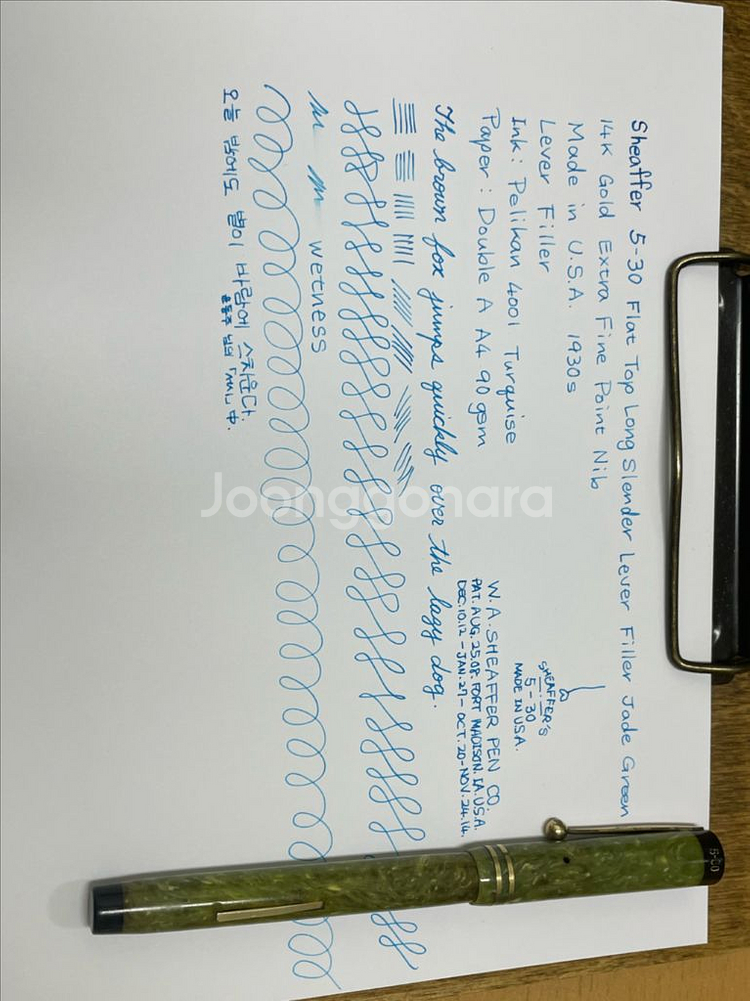 Sheaffer 5-30 Flat Top Long Slender Lever Filler Jade Green
14K Gold Extra Fine Point Nib
Made in U.S.A. 1930s
Lever Filler
Ink : Pelikan 4001 Turquise
Paper : Double A A4 90 gsm
SHEAFFER'S
5-30
MADE IN USA.
W.A. SHEAFFER PEN CO.
PAT. AUG. 25.08. FORT MADISON. IA. U.S.A.
DEC. 10. 12 - JAN. 27 - OCT. 20 - NOV. 24. 14.
The brown fox jumps quickly over the lazy dog.
wetness
오늘 밤에도 별이 바람에 스치운다.
윤동주 님의 「서시」 中.
Joonggonara